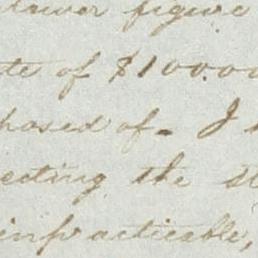 lower figure
te of $10000
posed of. I
ecting the st
impracticable,